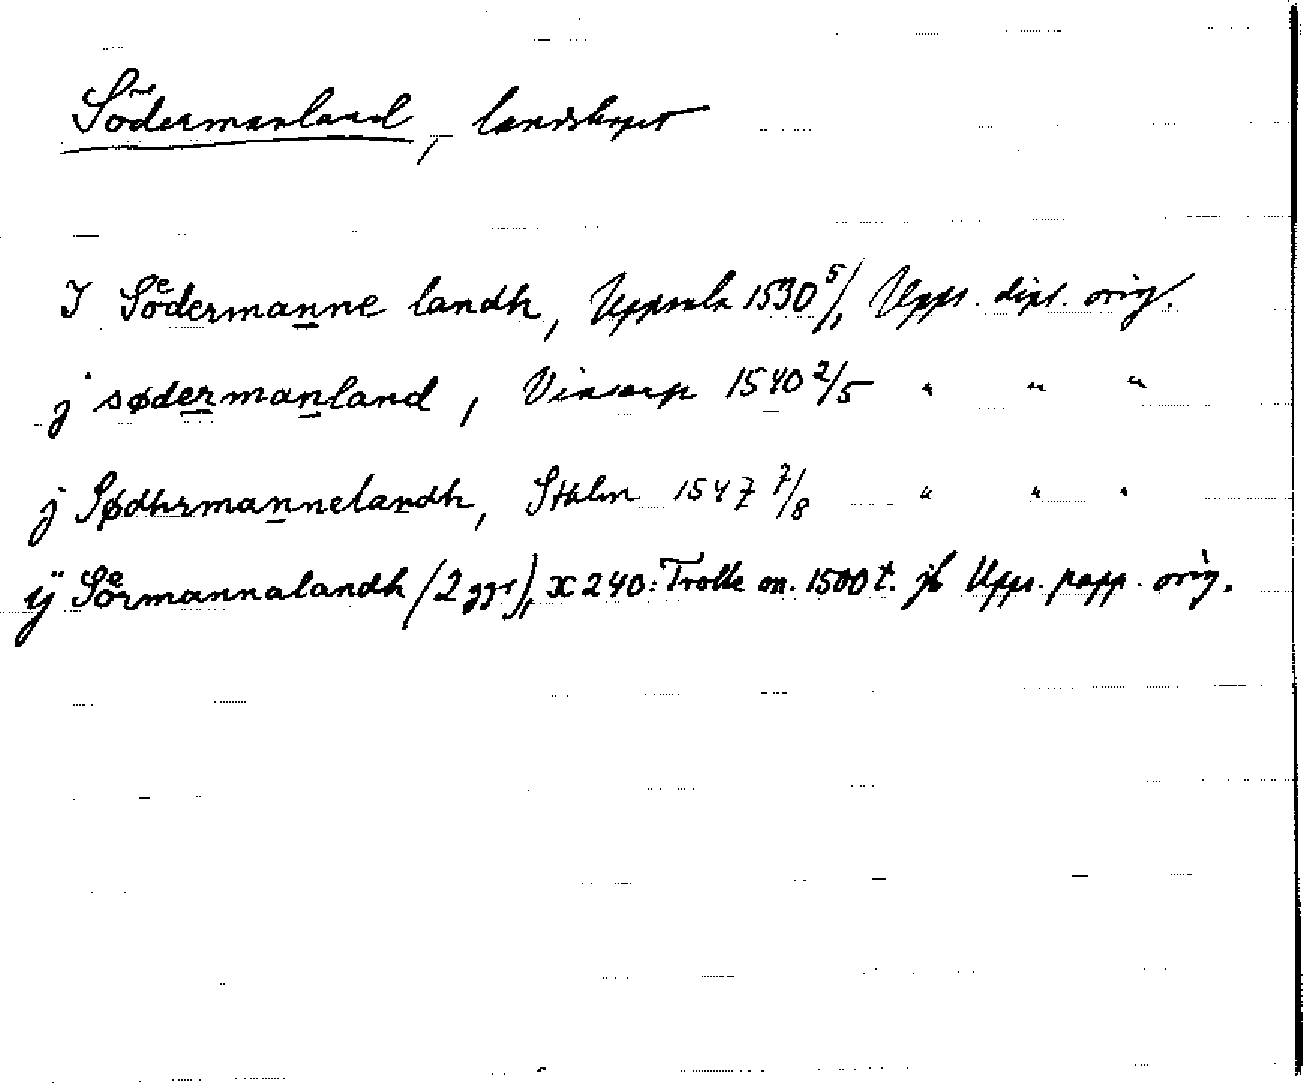 Södermanland, landskapet
J Soͤdermanne landh, Uppsala 1530 5/1 Upps. dipl. orig.
j sødermanland, Vinsarp 1540 2/5 " " "
j Sødhrmannelandh, Sthlm 1547 7/8 " " "
ÿ Soͤrmannalandh (2 ggr), X 240: Trolle on. 1500 t. jb Upps. papp. orig.